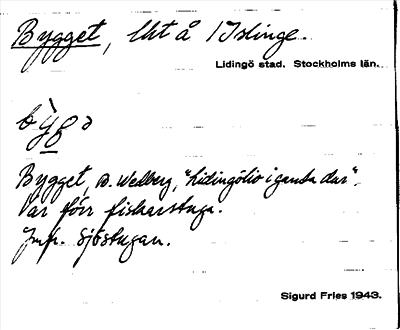 Bygget, Ut å 1 Islinge.
Lidingö stad. Stockholms län.
Bygget, B. Wedberg, "Lidingöliv i gamla dar".
Var förr fiskarstuga.
Jmfr. Sjöstugan.
Sigurd Fries 1943.